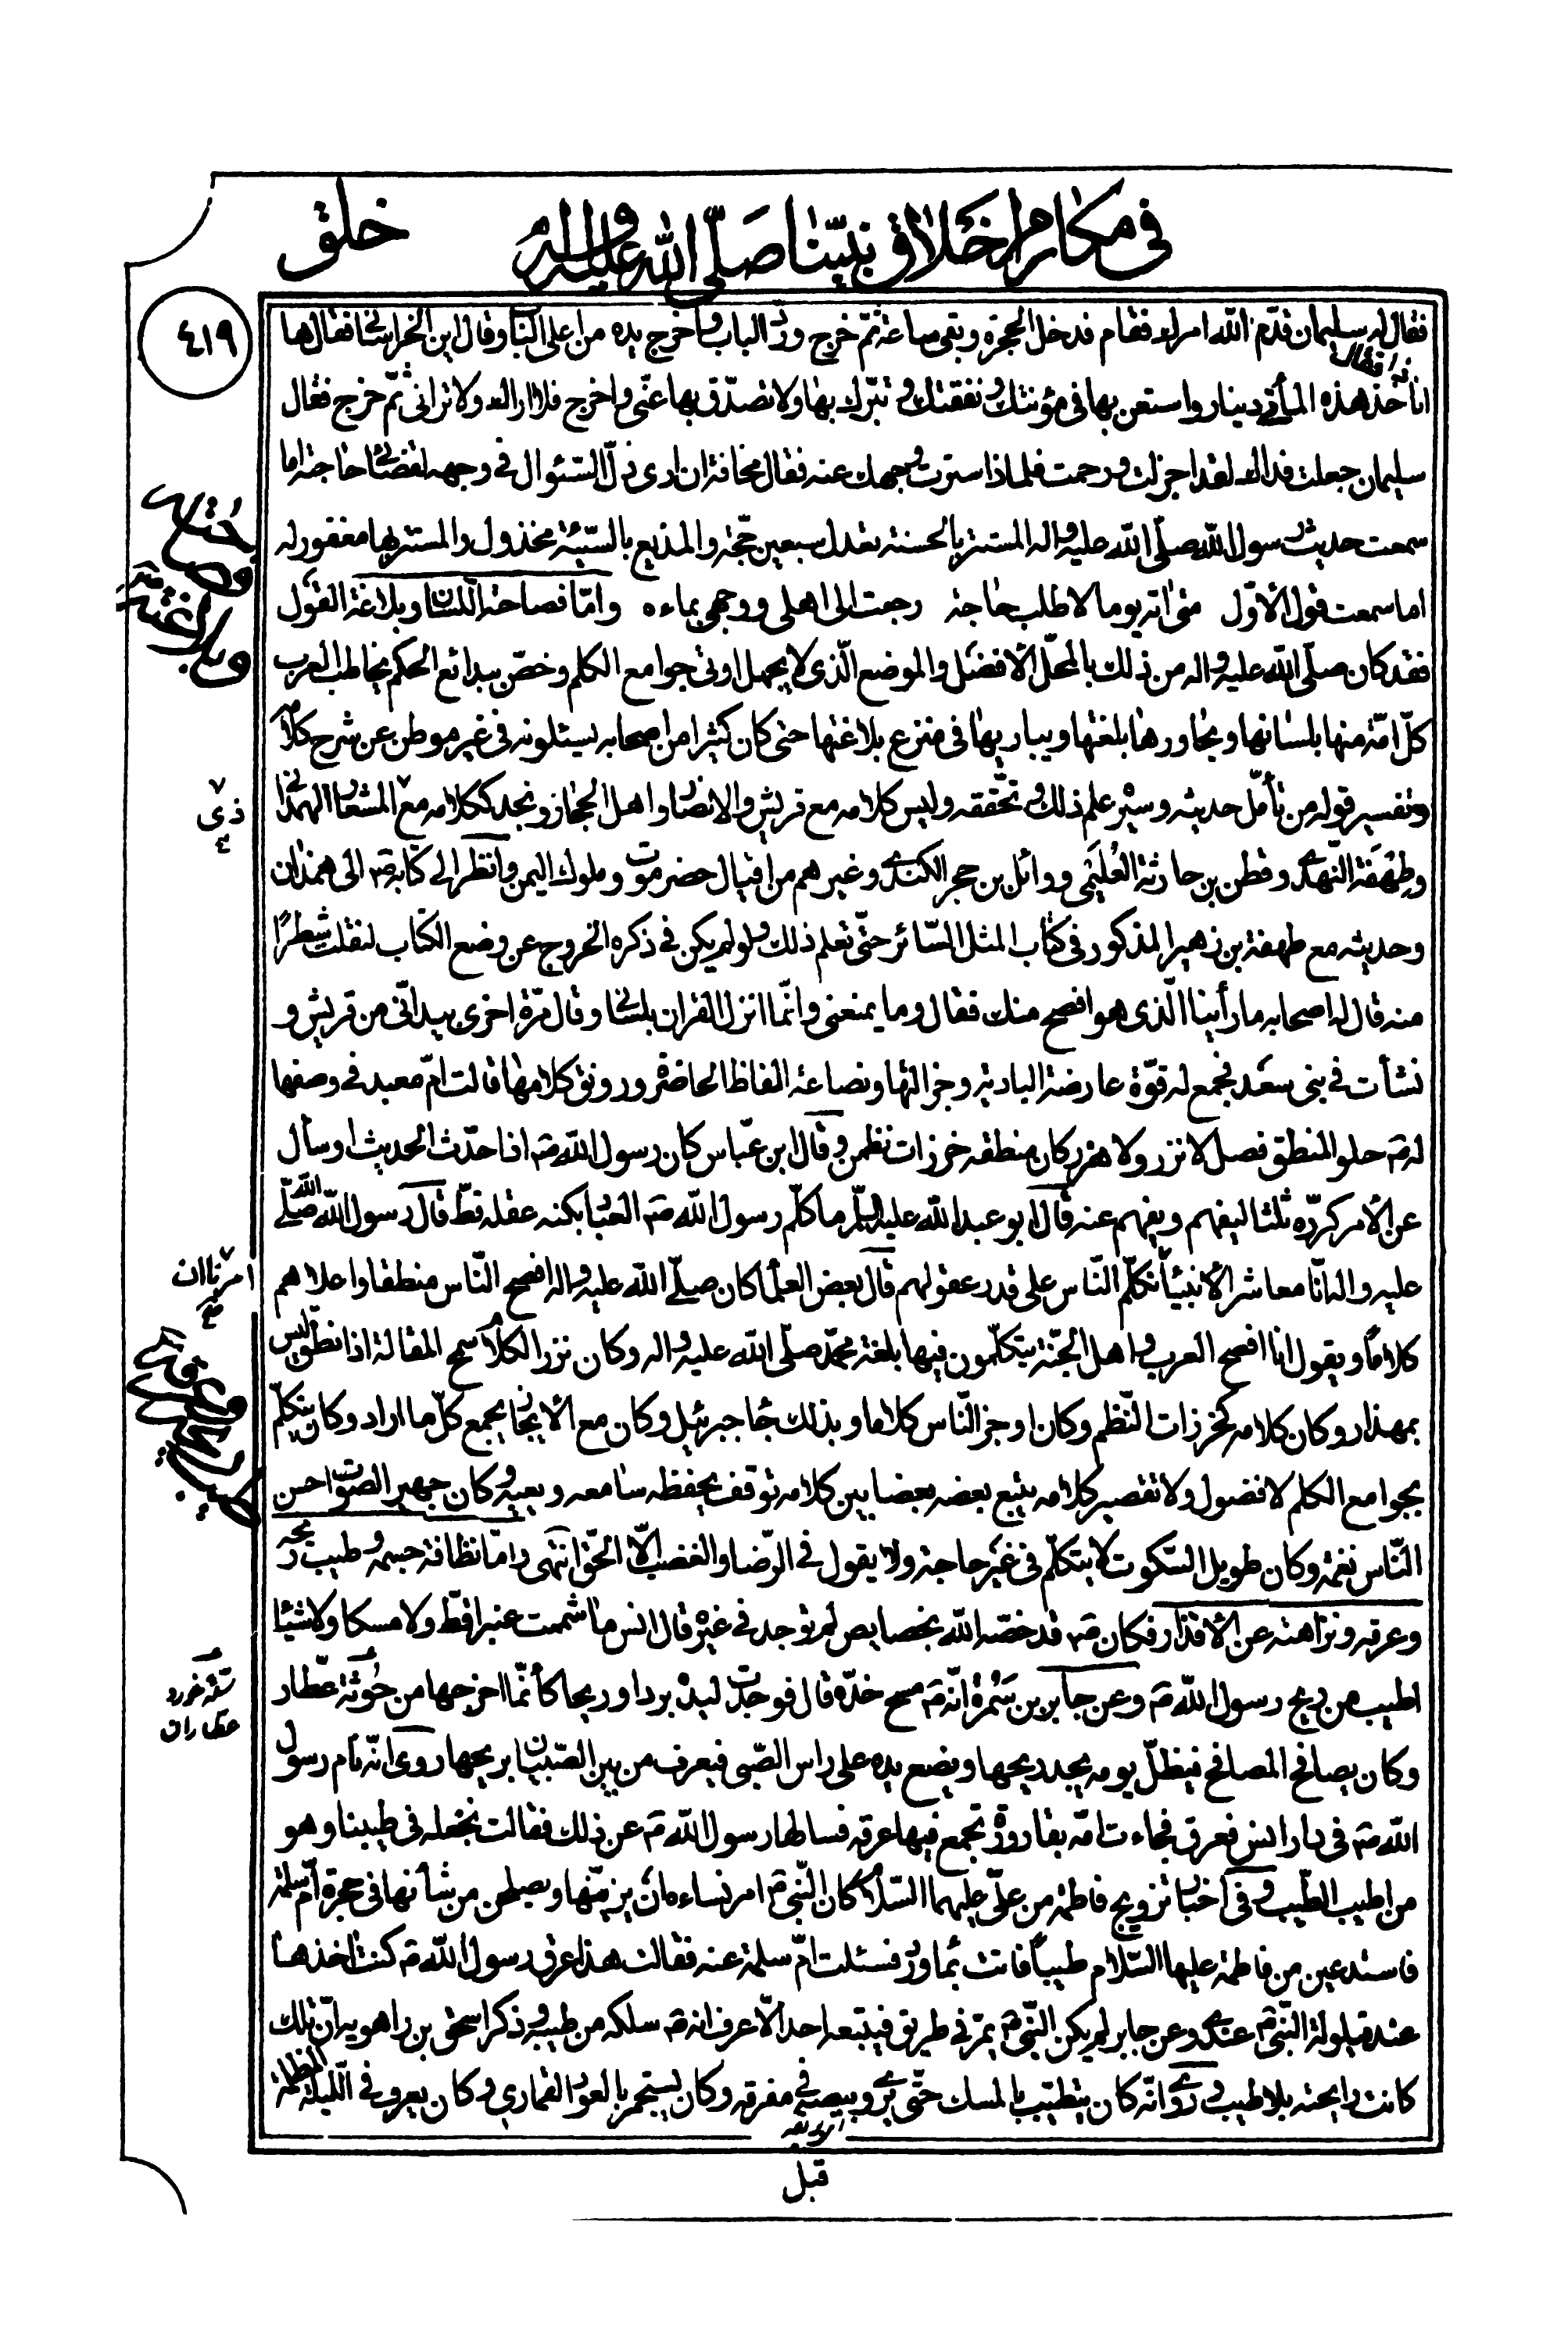 في مكارم اخلاق نبيّنا صلّى الله عليه واله
خلق
٤١٩
فقال له سليمان قدّم الله امرك فقام فدخل الحجرة وبقى ساعة ثمّ خرج وردّ الباب واخرج يده من اعلى الباب وقال اين الخراساني فقال ها
انا فقال خذ هذه المأتى دينار واستعن بها في مؤنتك ونفقتك وتبرّك بها ولا تصدّق بها عنّى واخرج فلا اراك ولا ترانى ثمّ خرج فقال
سليمان جعلت فداك لقد اجزلت ورحمت فلماذا سترت وجهك عنه فقال مخافة ان ارى ذلّ السّئوال في وجهه لقضائى حاجته اما
سمعت حديث رسول الله صلّى الله عليه واله المستتر بالحسنة تعدل سبعين حجّة والمذيع بالسّيّئة مخذول والمستتر بها مغفور له
اما سمعت قول الاوّل متى اته يوما لاطلب حاجة رجعت الى اهلى ووجهى بماءه وامّا فصاحة اللسان وبلاغة القول
فقد كان صلّى الله عليه واله من ذلك بالمحلّ الافضل والموضع الّذى لا يجهل اوتى جوامع الكلم وخصّ ببدائع الحكم يخاطب العرب
كلّ امّة منها بلسانها ويحاورها بلغتها ويباريها في منزع بلاغتها حتى كان كثيرا من اصحابه يسئلونه في غير موطن عن شرح كلامه
وتفسير قوله من تأمّل حديثه وسيره علم ذلك وتحقّقه وليس كلامه مع قريش والانصار واهل الحجاز ونجد ككلامه مع المشعار الهمدانى
وطهفة النّهدى وقطن بن حارثة العُلَيمى ووائل بن حجر الكندى وغيرهم من اقيال حضرموت وملوك اليمن وانظر الى كتابه ص الى همدان
وحديثه مع طهفة بن زهير المذكور في كتاب المثل السّائر حتّى تعلم ذلك ولو لم يكن في ذكره الخروج عن وضع الكتاب لنقلت شطرًا
منه قال له اصحابه ما رأينا الّذى هو افصح منك فقال وما يمنعنى وانّما انزل القران بلسانى وقال مرّة اخرى بيد انّى من قريش و
نشأت في بنى سعد فجمع له قوّة عارضة البادية وجزالتها ونصاعة الفاظ الحاضرة ورونق كلامها قالت امّ معبد في وصفها
له ص حلو المنطق فصل لا نزر ولا هزر كان منطقه خرزات نظمن وقال ابن عبّاس كان رسول الله ص اذا حدّث الحديث او سأل
عن الامر كرّره ثلثا ليفهم ويفهم عنه قال ابو عبد الله عليه السلم ما كلّم رسول الله ص العباد بكنه عقله قطّ قال رسول الله صلّى الله
عليه واله انّا معاشر الانبياء نكلّم النّاس على قدر عقولهم قال بعض العلماء كان صلّى الله عليه واله افصح النّاس منطقا واحلاهم
كلاما ويقول انا افصح العرب واهل الجنّة يتكلّمون فيها بلغة محمّد صلّى الله عليه واله وكان نزر الكلام سمح المقالة اذا نطق ليس
بمهذار وكان كلامه كخرزات النّظم وكان اوجز النّاس كلاما وبذلك جاء جبرئيل وكان مع الايجاز يجمع كلّ ما اراد وكان يتكلّم
بجوامع الكلم لا فضول ولا تقصير كلامه يتبع بعضه بعضا بين كلامه توقف يحفظه سامعه ويعيه وكان جهير الصّوت احسن
النّاس نغمة وكان طويل السّكوت لا يتكلّم في غير حاجة ولا يقول في الرّضا والغضب الّا الحقّ انتهى وامّا نظافة جسمه وطيب ريحه
وعرقه ونزاهته عن الاقذار فكان ص قد خصّه الله بخصايص لم توجد في غيره قال انس ما شممت عنبرا قطّ ولا مسكا ولا شيئا
اطيب من ريح رسول الله ص وعن جابر بن سَمُرة انّه ص مسح خدّه قال فوجدت ليده بردا وريحا كأنّما اخرجها من جُونة عطّار
وكان يصافح المصافح فيظلّ يومه يجد ريحها ويضع يده على راس الصّبى فيعرف من بين الصّبيان بريحها روى انّه نام رسول
الله ص في دار انس فعرق فجاءت امّه بقارورة تجمع فيها عرقه فسالها رسول الله ص عن ذلك فقالت نجعله في طيبنا وهو
من اطيب الطّيب وفى اخبار تزويج فاطمة من علىّ عليهما السّلام كان النّبى ص امر نساءه ان يزيّنها ويصلحن من شأنها في حجرة امّ سلمة
فاستدعين من فاطمة عليها السّلام طيبا فاتت بماورد فسئلت امّ سلمة عنه فقالت هذا عرق رسول الله ص كنت اخذه
عند قيلولة النّبى ص عندى وعن جابر لم يكن النّبى ص يمرّ في طريق فيتبعه احد الّا عرف انه ص سلكه من طيبه وذكر اسحق بن راهويه انّ تلك
كانت رايحته بلا طيب وروى انّه كان يتطيّب بالمسك حتّى يرى وبيصه في مفرقه وكان يستجمر بالعود القمارى وكان يعرف في اللّيلة المظلمة
قبل
فصاحته
وبلاغته
ذى
امرنا ان
وعرقه
عطاران